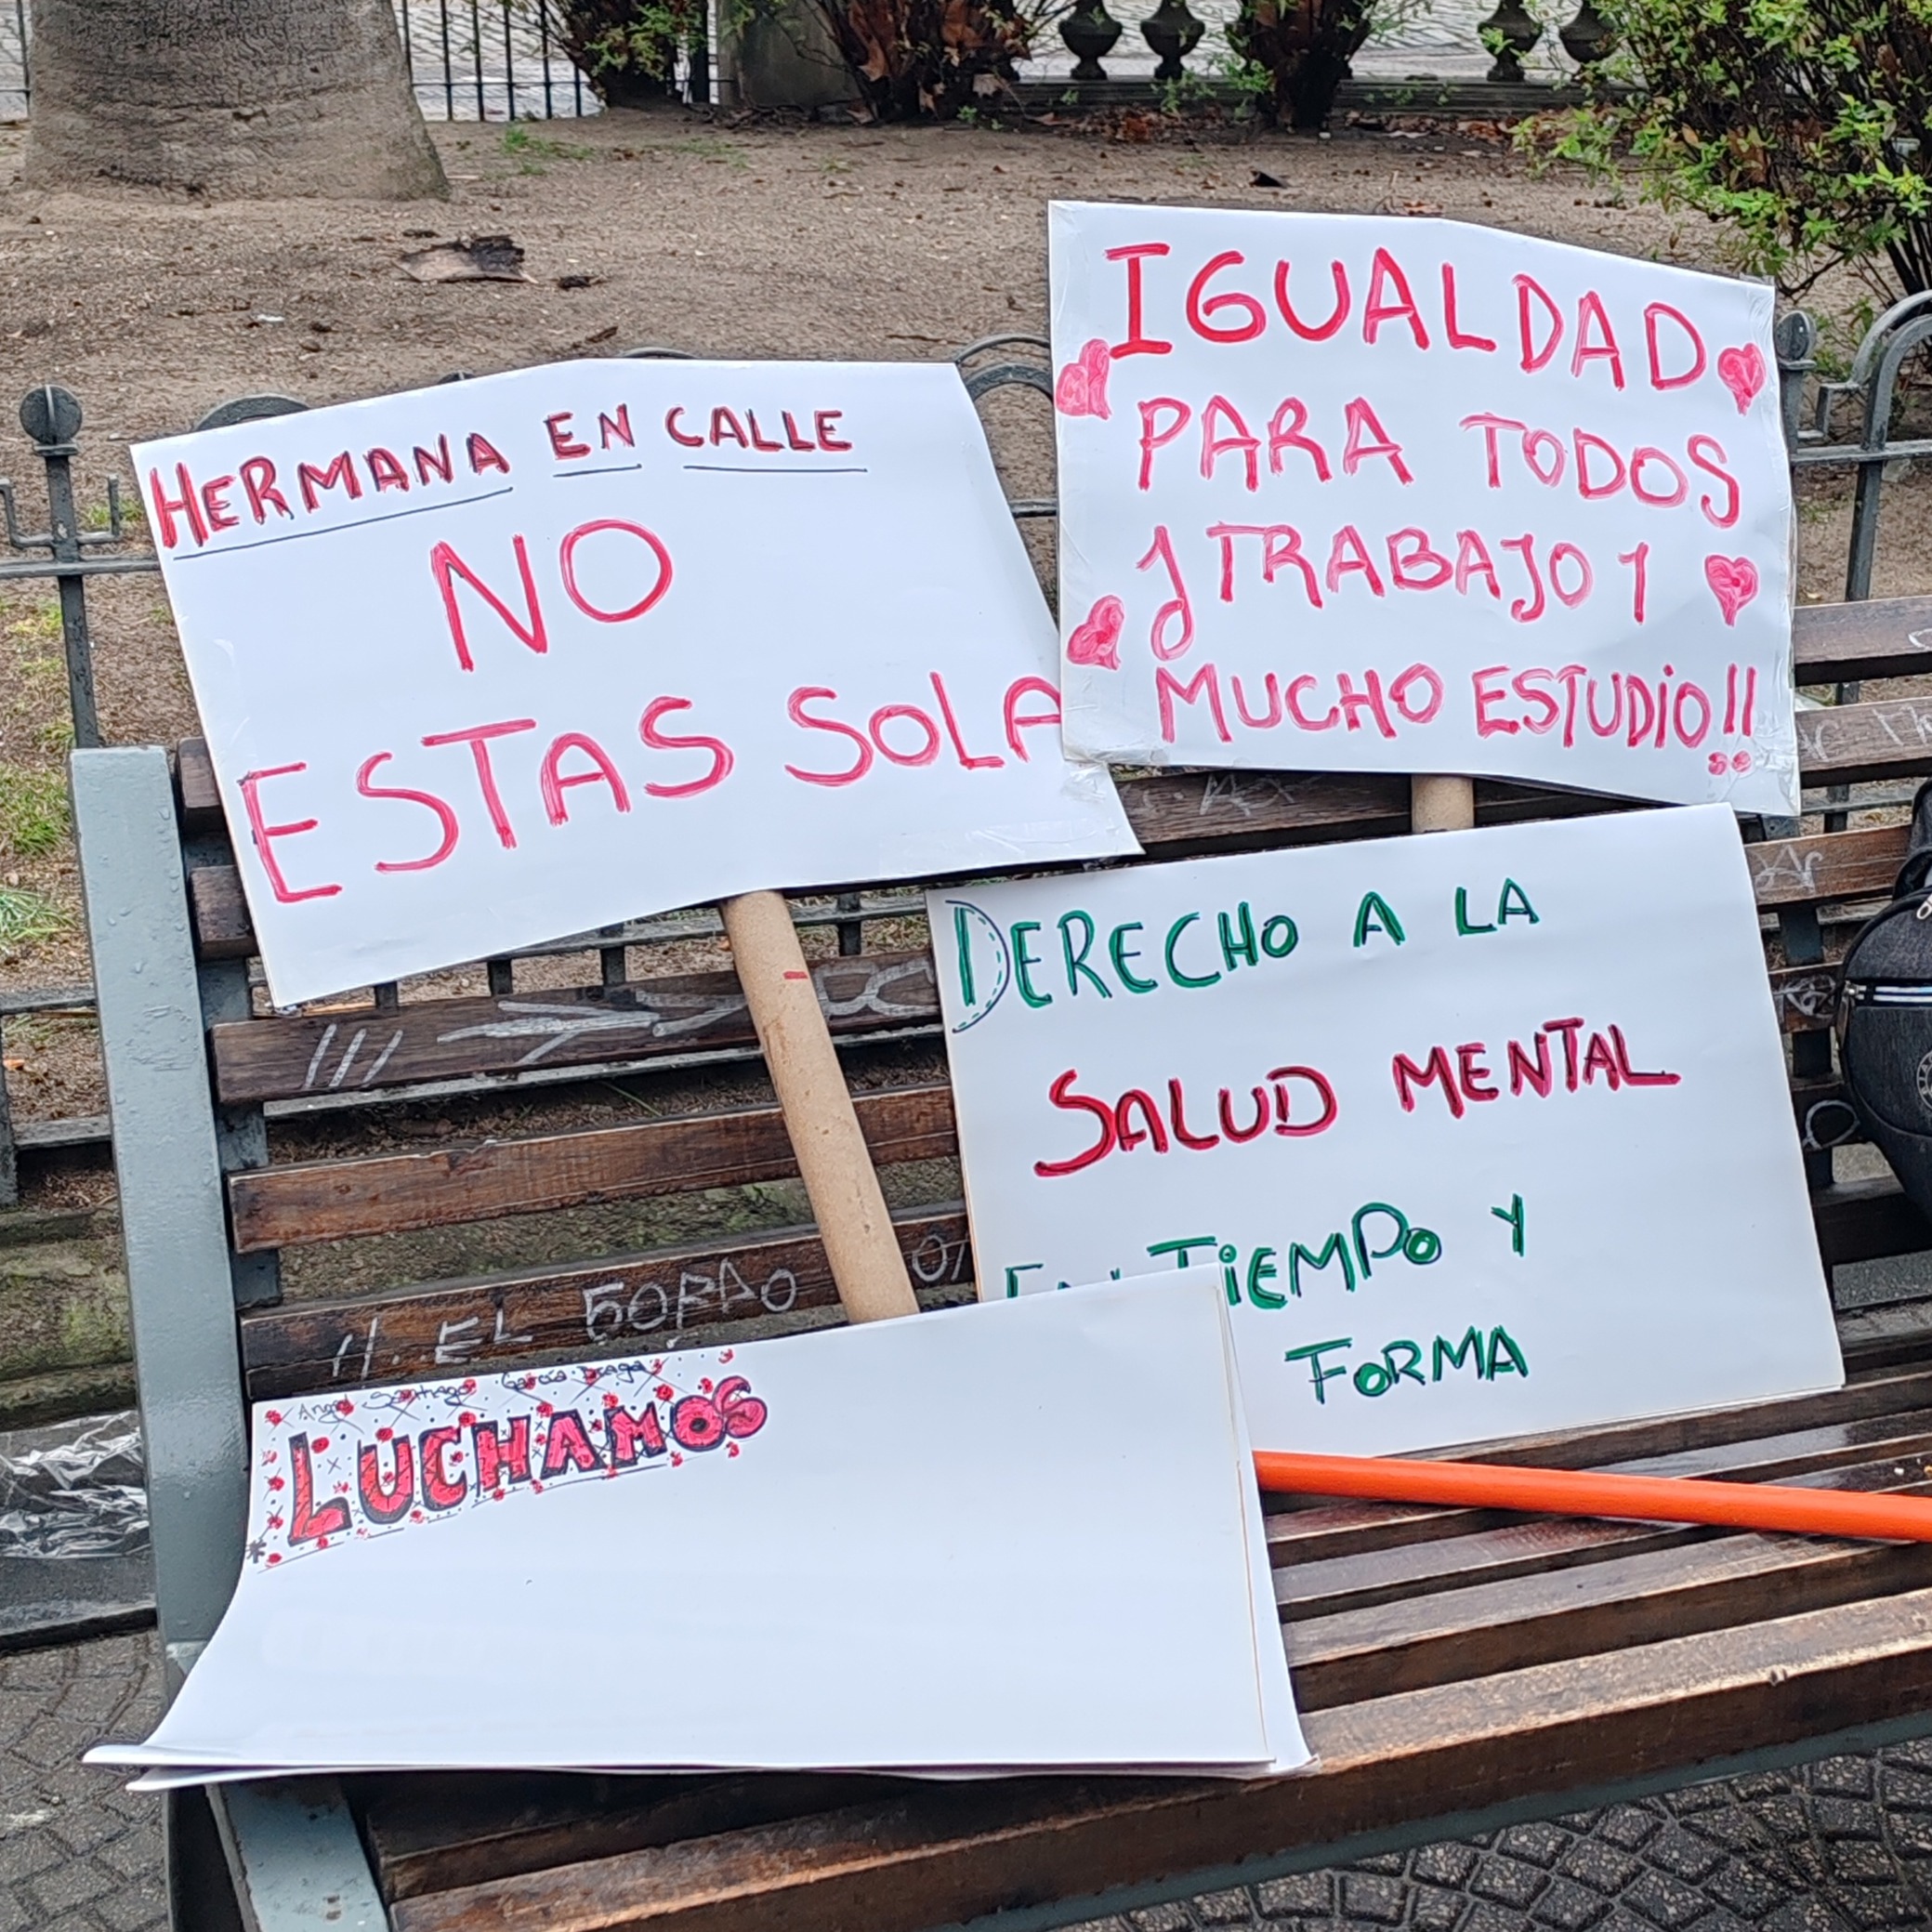 HERMANA EN CALLE
NO
ESTAS SOLA
IGUALDAD
PARA TODOS
¡TRABAJO Y
MUCHO ESTUDIO!!
DERECHO A LA
SALUD MENTAL
EN TIEMPO Y
FORMA
Santiago García
LUCHAMOS
EL